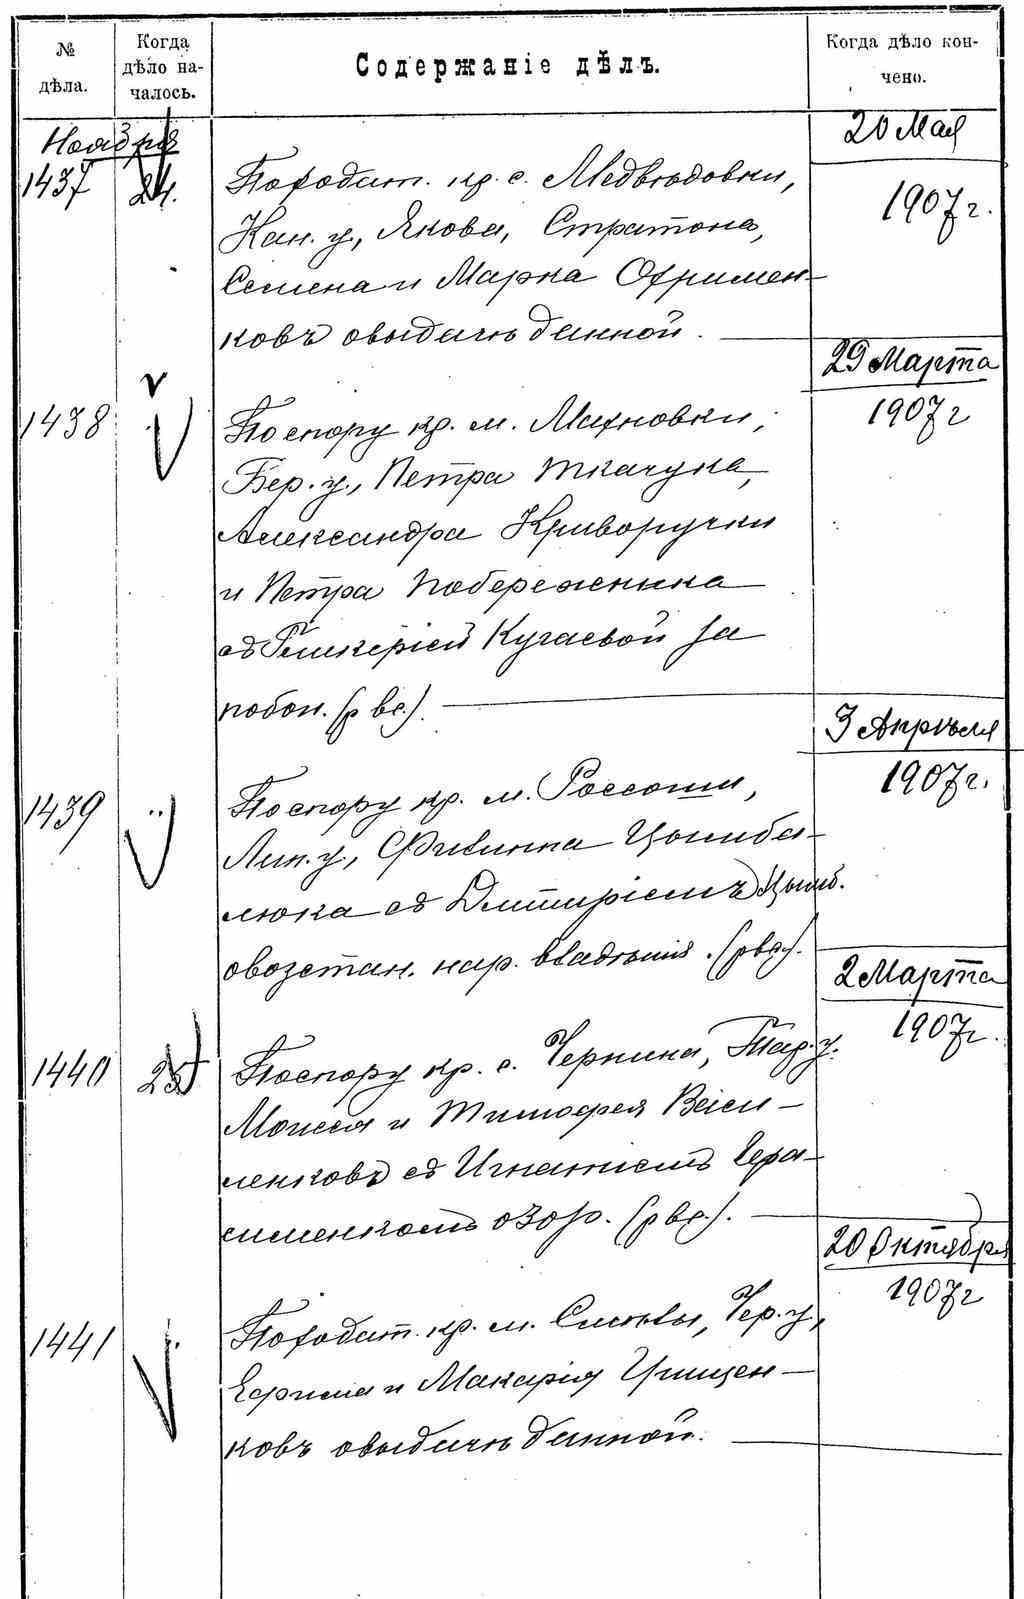 № дѣла.
Когда дѣло началось.
Содержаніе дѣлъ.
Когда дѣло кончено.
Ноября
20 Мая
1437
24.
По ходат. кр. с. Медвѣдовки,
1907 г.
Кан. у., Якова, Стратона,
Семена и Марка Охримен-
ковъ о выдачѣ данной.
29 Марта
1438
По спору кр. м. Махновки,
1907 г
Бер. у., Петра Ткачука,
Александра Криворучки
и Петра Побережника
съ Кугаевой за
побои.
3 Апрѣля
1439
По спору кр. м. Россоши,
1907 г.
Лип. у., Филиппа Цымба-
люка съ Дмитріемъ Цымб.
о возстан. нар. владѣнія.
2 Марта
1440
25
По спору кр. с. Чернина, Тар. у.
1907 г.
Моисея и Тимофея Васи-
ленковъ съ Игнатіемъ Гера-
сименкомъ о зем.
20 Октября
1441
По ходат. кр. м. Смѣлы, Чер. у.,
1907 г
Ефима и Макарія Грищен-
ковъ о выдачѣ данной.